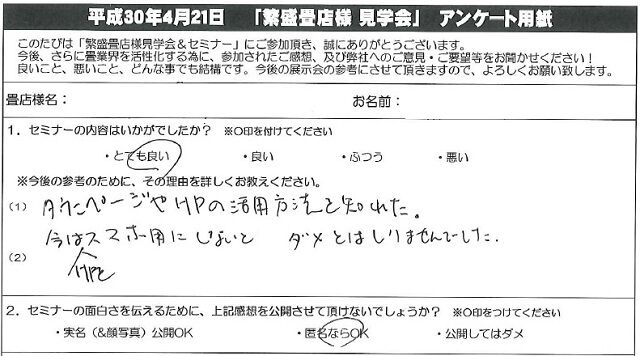 平成30年4月21日 「繁盛畳店様 見学会」 アンケート用紙
このたびは「繁盛畳店様見学会&セミナー」にご参加頂き、誠にありがとうございます。
今後、さらに畳業界を活性化する為に、参加されたご感想、及び弊社へのご意見・ご要望等をお聞かせください！
良いこと、悪いこと、どんな事でも結構です。今後の展示会の参考にさせて頂きますので、よろしくお願い致します。
畳店様名： お名前：
1．セミナーの内容はいかがでしたか？ ※○印を付けてください
・とても良い ・良い ・ふつう ・悪い
※今後の参考のために、その理由を詳しくお教えください。
(1) タウンページやHPの活用方法を知れた。
今はスマホ用にしないと ダメとはしりませんでした.
(2)
HPを
2．セミナーの面白さを伝えるために、上記感想を公開させて頂けないでしょうか？ ※○印をつけてください
・実名（&顔写真）公開OK ・匿名ならOK ・公開してはダメ